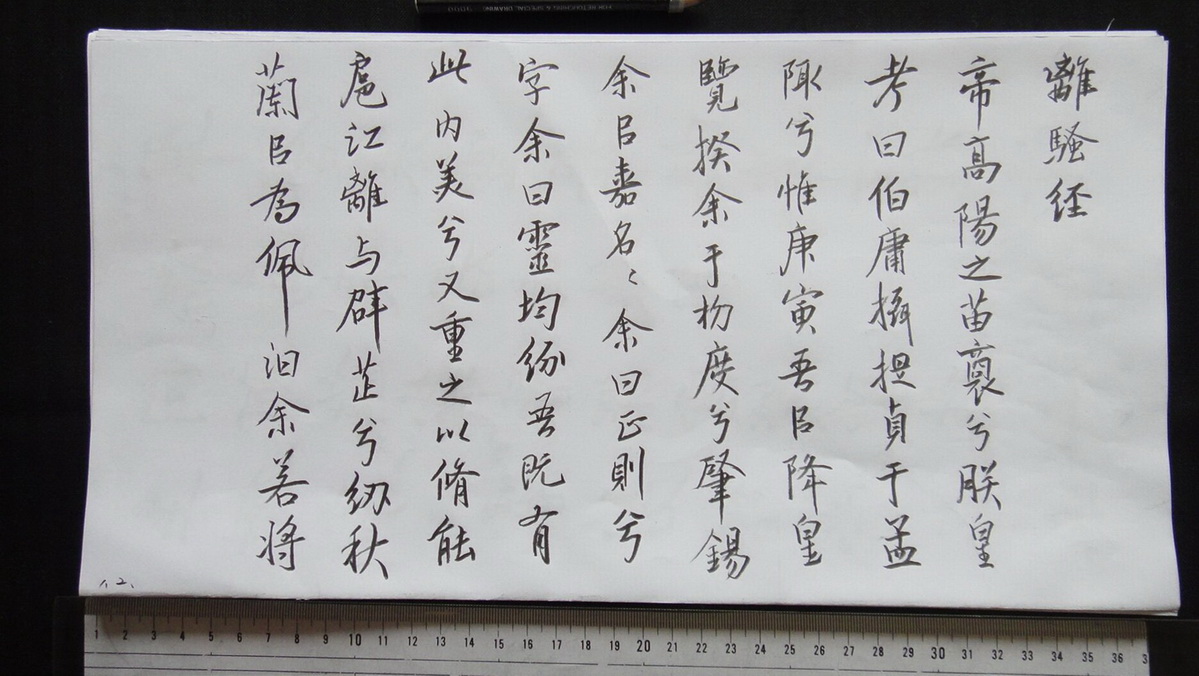 離騷经
帝高陽之苗裔兮朕皇
考曰伯庸攝提貞于孟
陬兮惟庚寅吾㠯降皇
覽揆余于初度兮肇錫
余㠯嘉名〻余曰正則兮
字余曰靈均纷吾既有
此内美兮又重之以脩能
扈江離与辟芷兮纫秋
蘭㠯為佩汩余若将
1 2 3 4 5 6 7 8 9 10 11 12 13 14 15 16 17 18 19 20 21 22 23 24 25 26 27 28 29 30 31 32 33 34 35 36